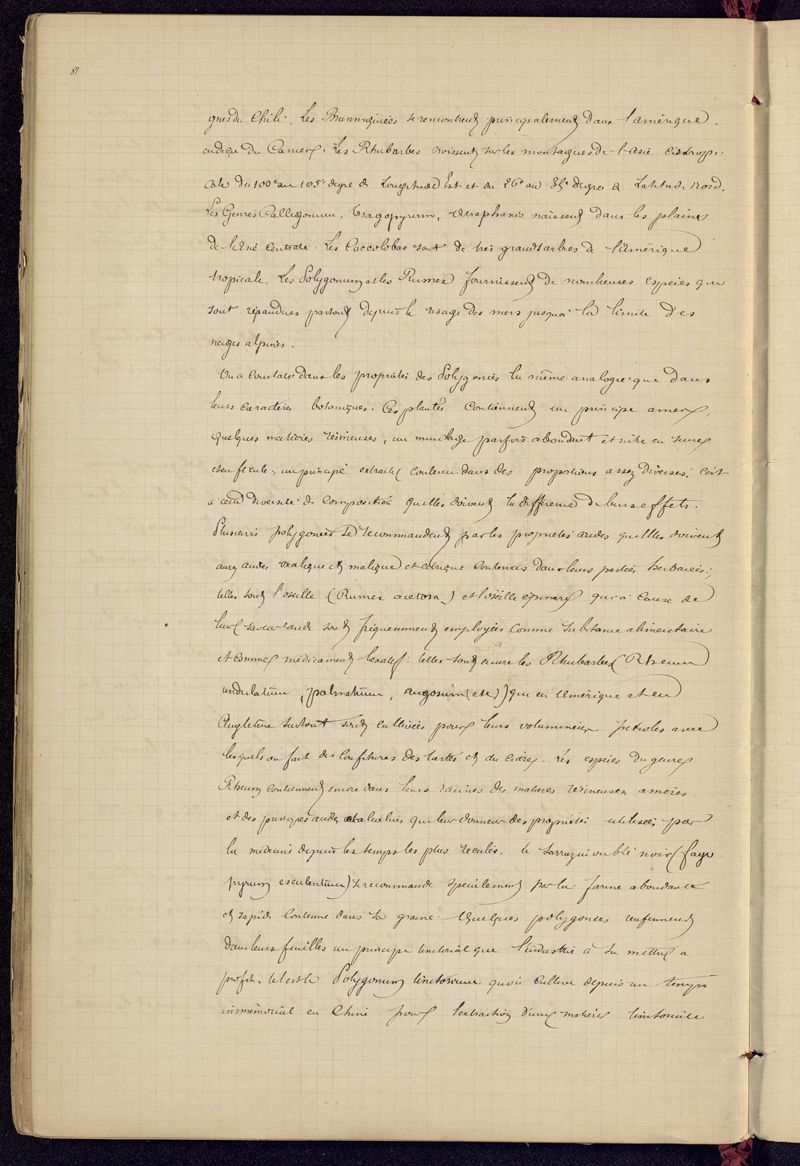 81
gnes du Chili. Les Brunnichiées se rencontrent principalement dans l'amérique
au deça du Cancer. Les Rhubarbes croissent sur les montagnes de l'asie extratropi
cale du 100e au 105e degré de Longitude Est et du 26e au 35e degrés de Latitude Nord.
Les Genres Calligonum, tragopyrum, atraphaxis naissent dans les plaines
de l'asie centrale. Les Coccolobas sont de très grands arbres de l'amérique
tropicale. Les Polygonum et les Rumex fournissent de nombreuses espèces qui
sont répandues partout depuis le rivage des mers jusqu'à la limite des
neiges alpines.
On a constaté dans les propriétés des Polygonées la même analogie que dans
leurs caractères botaniques. Ces plantes contiennent un principe amer,
quelques matières résineuses, un mucilage parfois abondant et riche en sucre
et en fécule, un principe extractif contenu dans des proportions assez diverses. C'est
à cette diversité de composition qu'elles doivent la différence de leurs effets.
Plusieurs polygonées se recommandent par les propriétés acides qu'elles doivent
aux acides oxalique et malique et citrique contenus dans leurs parties herbacées;
telles sont l'oseille (Rumex acetosa) et l'oseille épinard qui à cause de
leur saveur acide sont fréquemment employées comme substance alimentaire
et comme médicament laxatif: telles sont encore les Rhubarbes (Rheum
undulatum, palmatum, etc) qui en Amérique et en
Angleterre surtout sont cultivées pour leurs volumineux pétioles avec
lesquels on fait des confitures des tartes et du cidre. Les espèces du genre
Rheum contiennent encore dans leurs racines des matières résineuses, amères
et des principes acides alcalins qui leur donnent des propriétés utilisées par
la médecine depuis les temps les plus reculés. le sarrazin ou blé noir (fago
pyrum esculentum) se recommande spécialement par la farine abondante
et sapide contenue dans sa graine. Quelques polygonées renferment
dans leurs feuilles un principe tinctorial que l'industrie a su mettre a
profit. tel est le Polygonum tinctorium qu'on cultive depuis un temps
immémorial en Chine pour l'extraction d'une matière tinctoriale